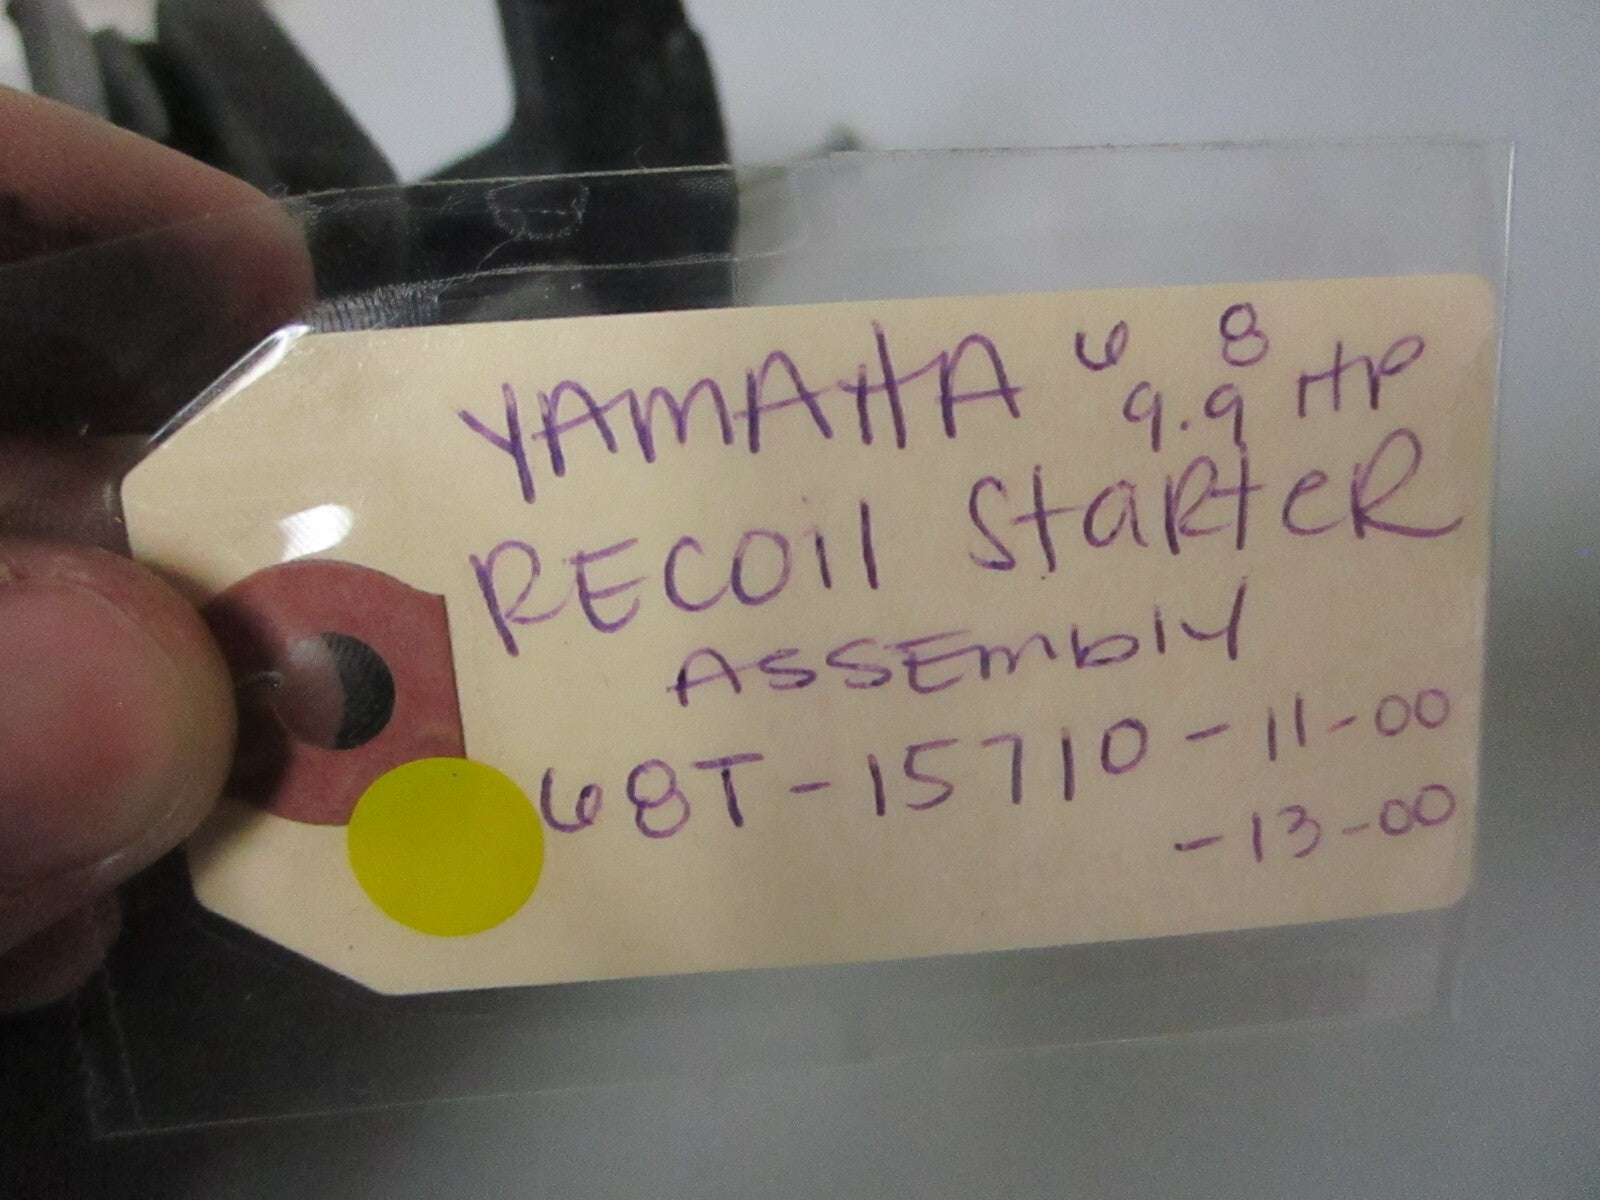 YAMAHA 6 8
9.9 HP
RECOil StaRteR
ASSEmbly
68T-15710-11-00
-13-00